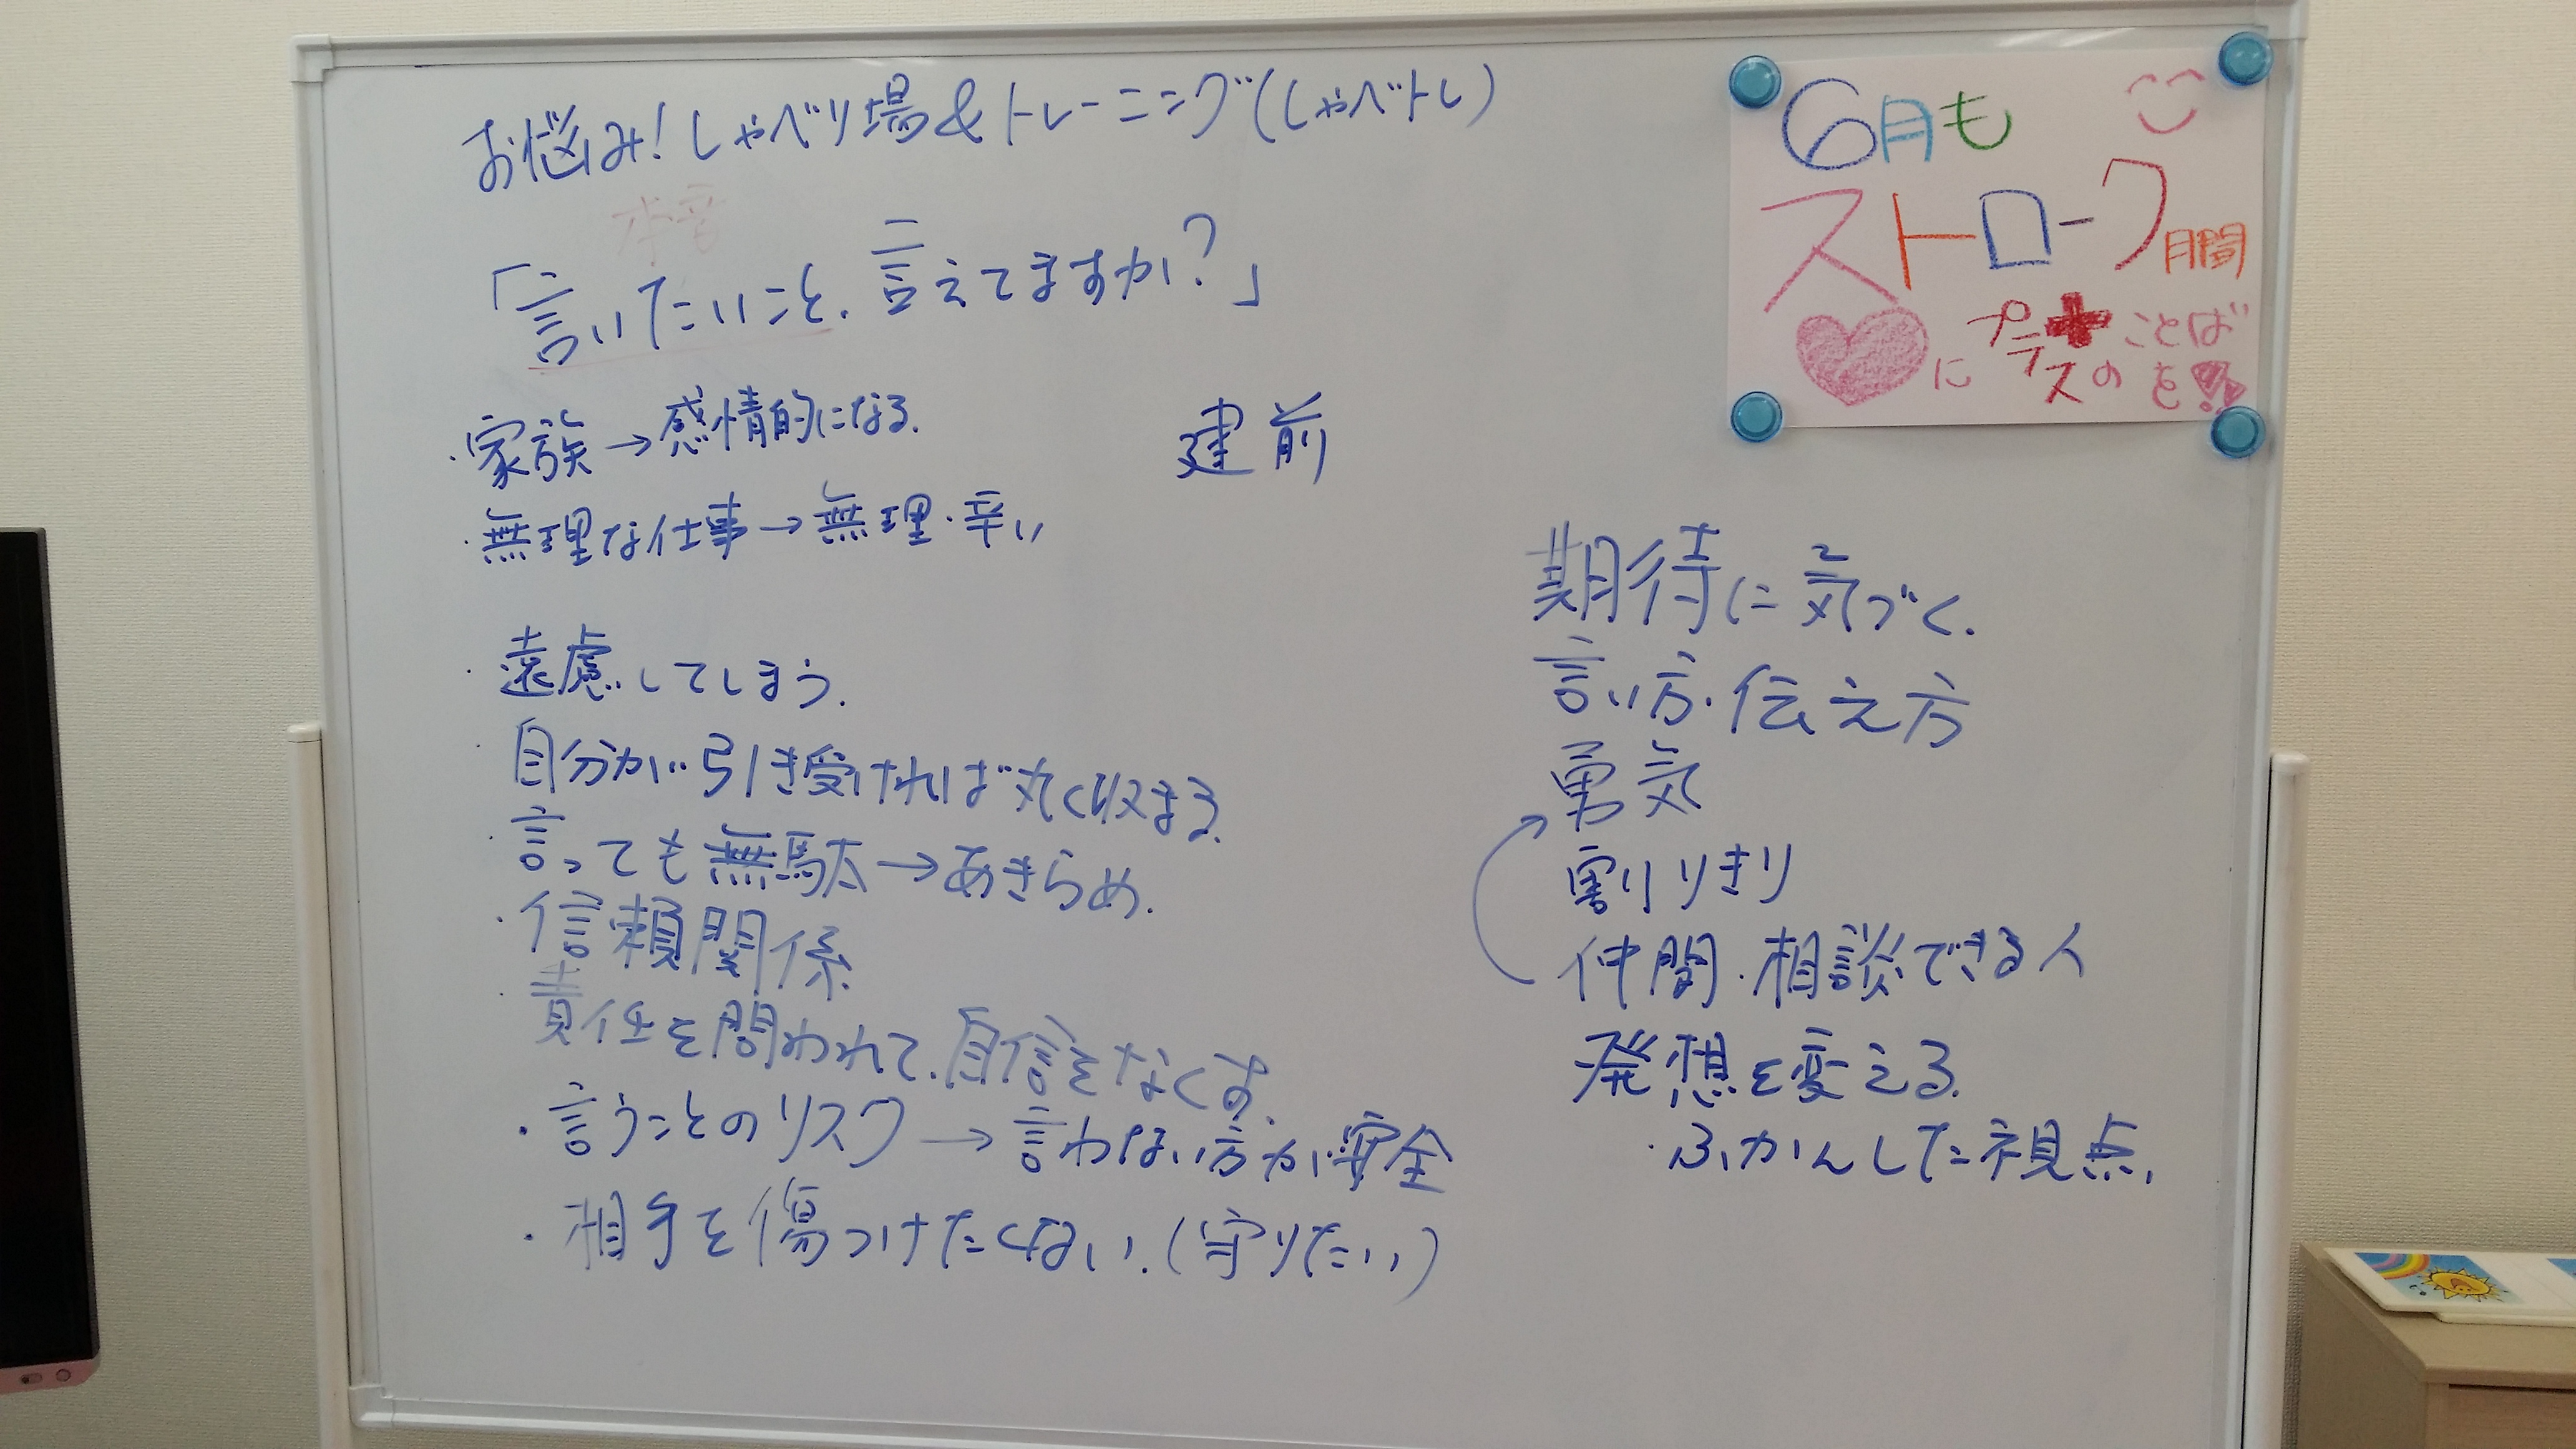 お悩み!しゃべり場&トレーニング(しゃべトレ)
本音
「言いたいこと、言えてますか?」
・家族→感情的になる。
建前
・無理な仕事→無理・辛い
・遠慮してしまう。
・自分が引き受ければ丸く収まる。
・言っても無駄→あきらめ。
・信頼関係
・責任を問われて、自信をなくす。
・言うことのリスク→言わない方が安全
・相手を傷つけたくない。(守りたい)
期待に気づく。
言い方・伝え方
勇気
割りきり
仲間・相談できる人
発想を変える。
・ふかんした視点。
6月も
ストローク月間
にプラスのことばを!!